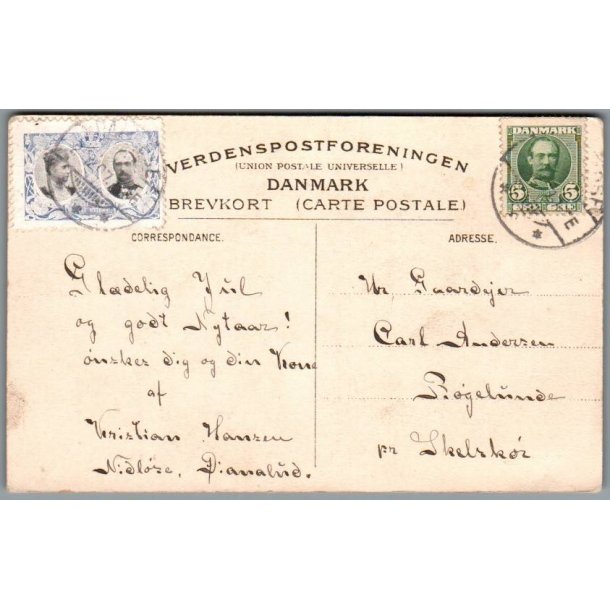 VERDENSPOSTFORENINGEN
(UNION POSTALE UNIVERSELLE)
DANMARK
BREVKORT (CARTE POSTALE)
DANMARK
5 5
CORRESPONDANCE.
Glædelig Jul
og godt Nytaar!
ønskes dig og din Kone
af
Kristian Hansen
Nidløse, Dianalud.
ADRESSE.
Hr. Gaardejer
Carl Andersen
Bøgelunde
pr Skelskør